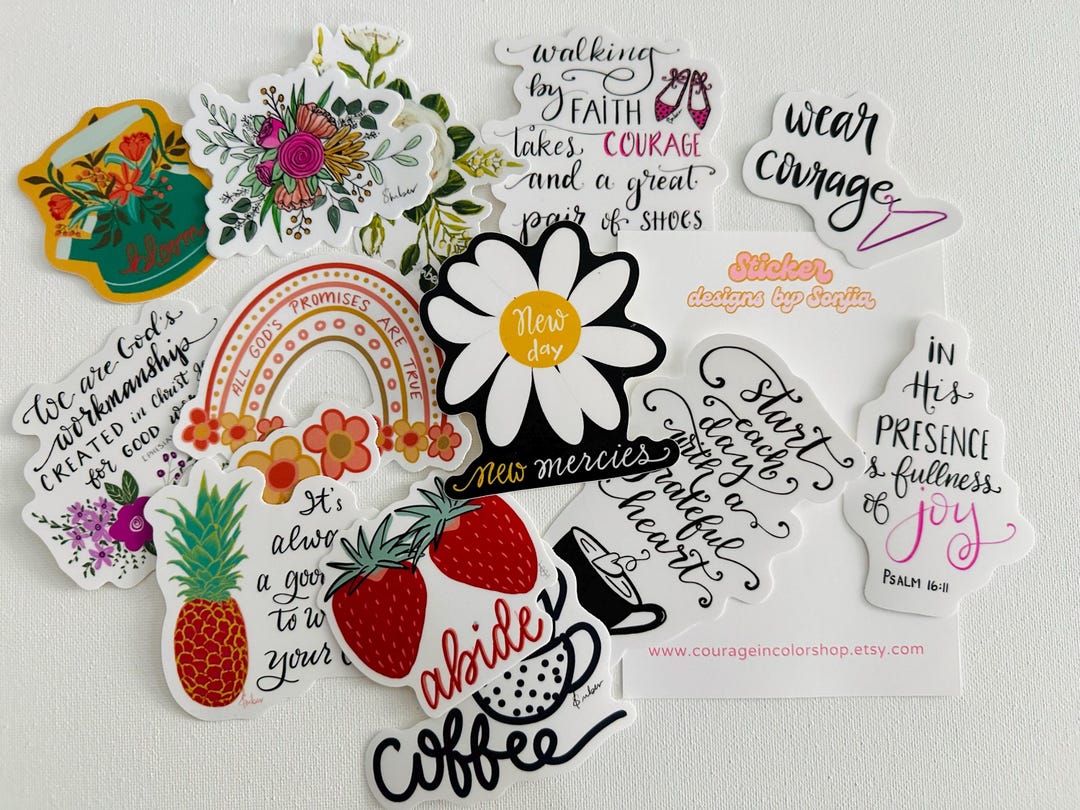 walking
by FAITH
takes COURAGE
and a great
pair of SHOES
wear
courage
bloom
Sticker
designs by Sonjia
ALL GOD'S PROMISES ARE TRUE
New
day
New mercies
We are God's
workmanship
CREATED in Christ
for GOOD
start
each
day
with a
grateful
heart
IN
His
PRESENCE
is fullness
of joy
PSALM 16:11
It's
a
to
your
abide
coffee
www.courageincolorshop.etsy.com